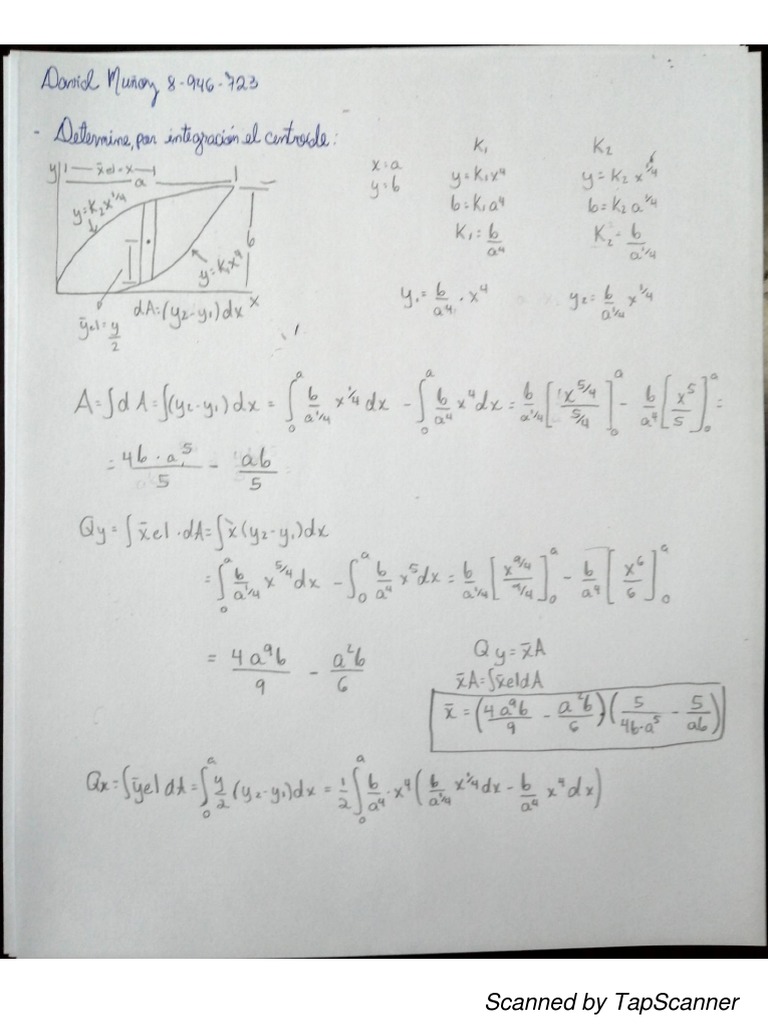 David Muñoz 8-946-723
- Determine, por integración el centroide:
K₁ K₂
x=a y=K₁x⁴ y=K₂x^1/4
y=b b=K₁a⁴ b=K₂a^1/4
K₁=b/a⁴ K₂=b/a^1/4
y₁=b/a⁴·x⁴ y₂=b/a^1/4 x^1/4
y x̄el=x
a
y=K₂x^1/4
b
y=K₁x⁴
x
dA=(y₂-y₁)dx
ȳel=y/2
A=∫dA=∫(y₂-y₁)dx = ∫₀^a b/a^1/4 x^1/4 dx - ∫₀^a b/a⁴ x⁴dx = b/a^1/4 [x^5/4/5/4]₀^a - b/a⁴ [x⁵/5]₀^a =
= 4b·a⁵/5 - ab/5
Qy=∫x̄el·dA=∫x(y₂-y₁)dx
=∫₀^a b/a^1/4 x^5/4 dx - ∫₀^a b/a⁴ x⁵dx = b/a^1/4 [x^9/4/9/4]₀^a - b/a⁴ [x⁶/6]₀^a
= 4a⁹b/9 - a²b/6
Qy=x̄A
x̄A=∫x̄eldA
x̄=(4a⁹b/9 - a²b/6)(5/4b·a⁵ - 5/ab)
Qx=∫ȳel dA=∫₀^a y/2 (y₂-y₁)dx = 1/2 ∫₀^a b/a⁴·x⁴(b/a^1/4 x^1/4 dx - b/a⁴ x⁴ dx)
Scanned by TapScanner